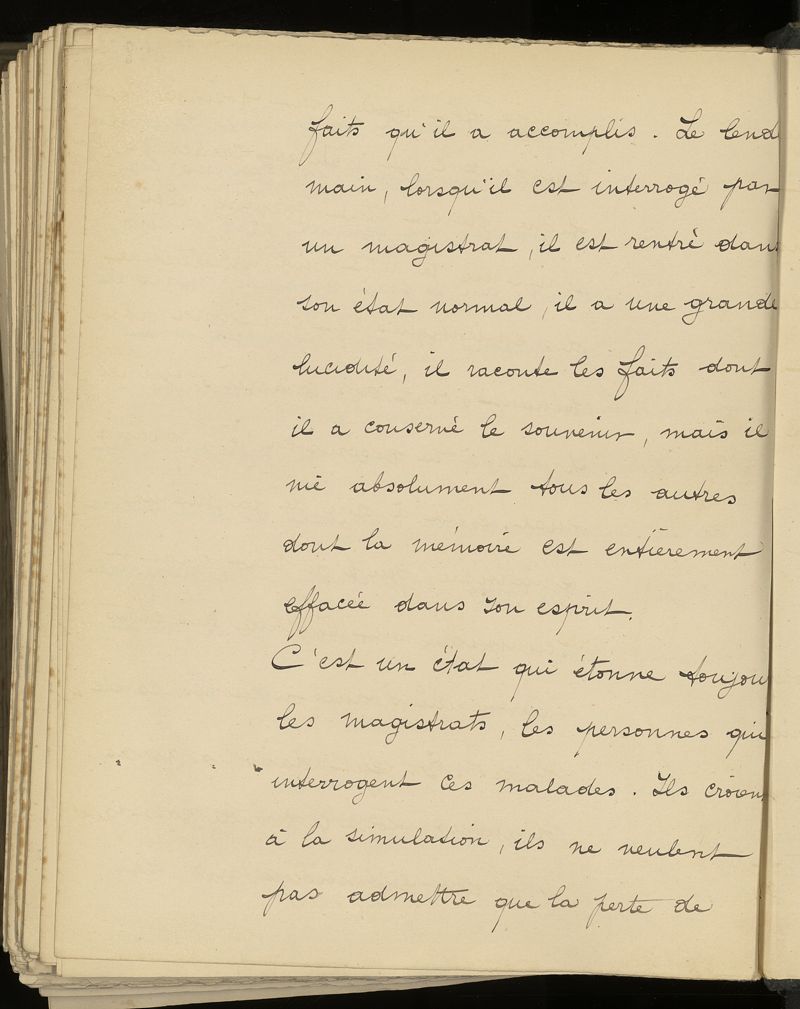 faits qu'il a accomplis. Le lend
main, lorsqu'il est interrogé par
un magistrat, il est rentré dans
son état normal, il a une grande
lucidité, il raconte les faits dont
il a conservé le souvenir, mais il
nie absolument tous les autres
dont la mémoire est entièrement
effacée dans son esprit.
C'est un état qui étonne toujou
les magistrats, les personnes qui
interrogent ces malades. Ils croient
à la simulation, ils ne veulent
pas admettre que la perte de